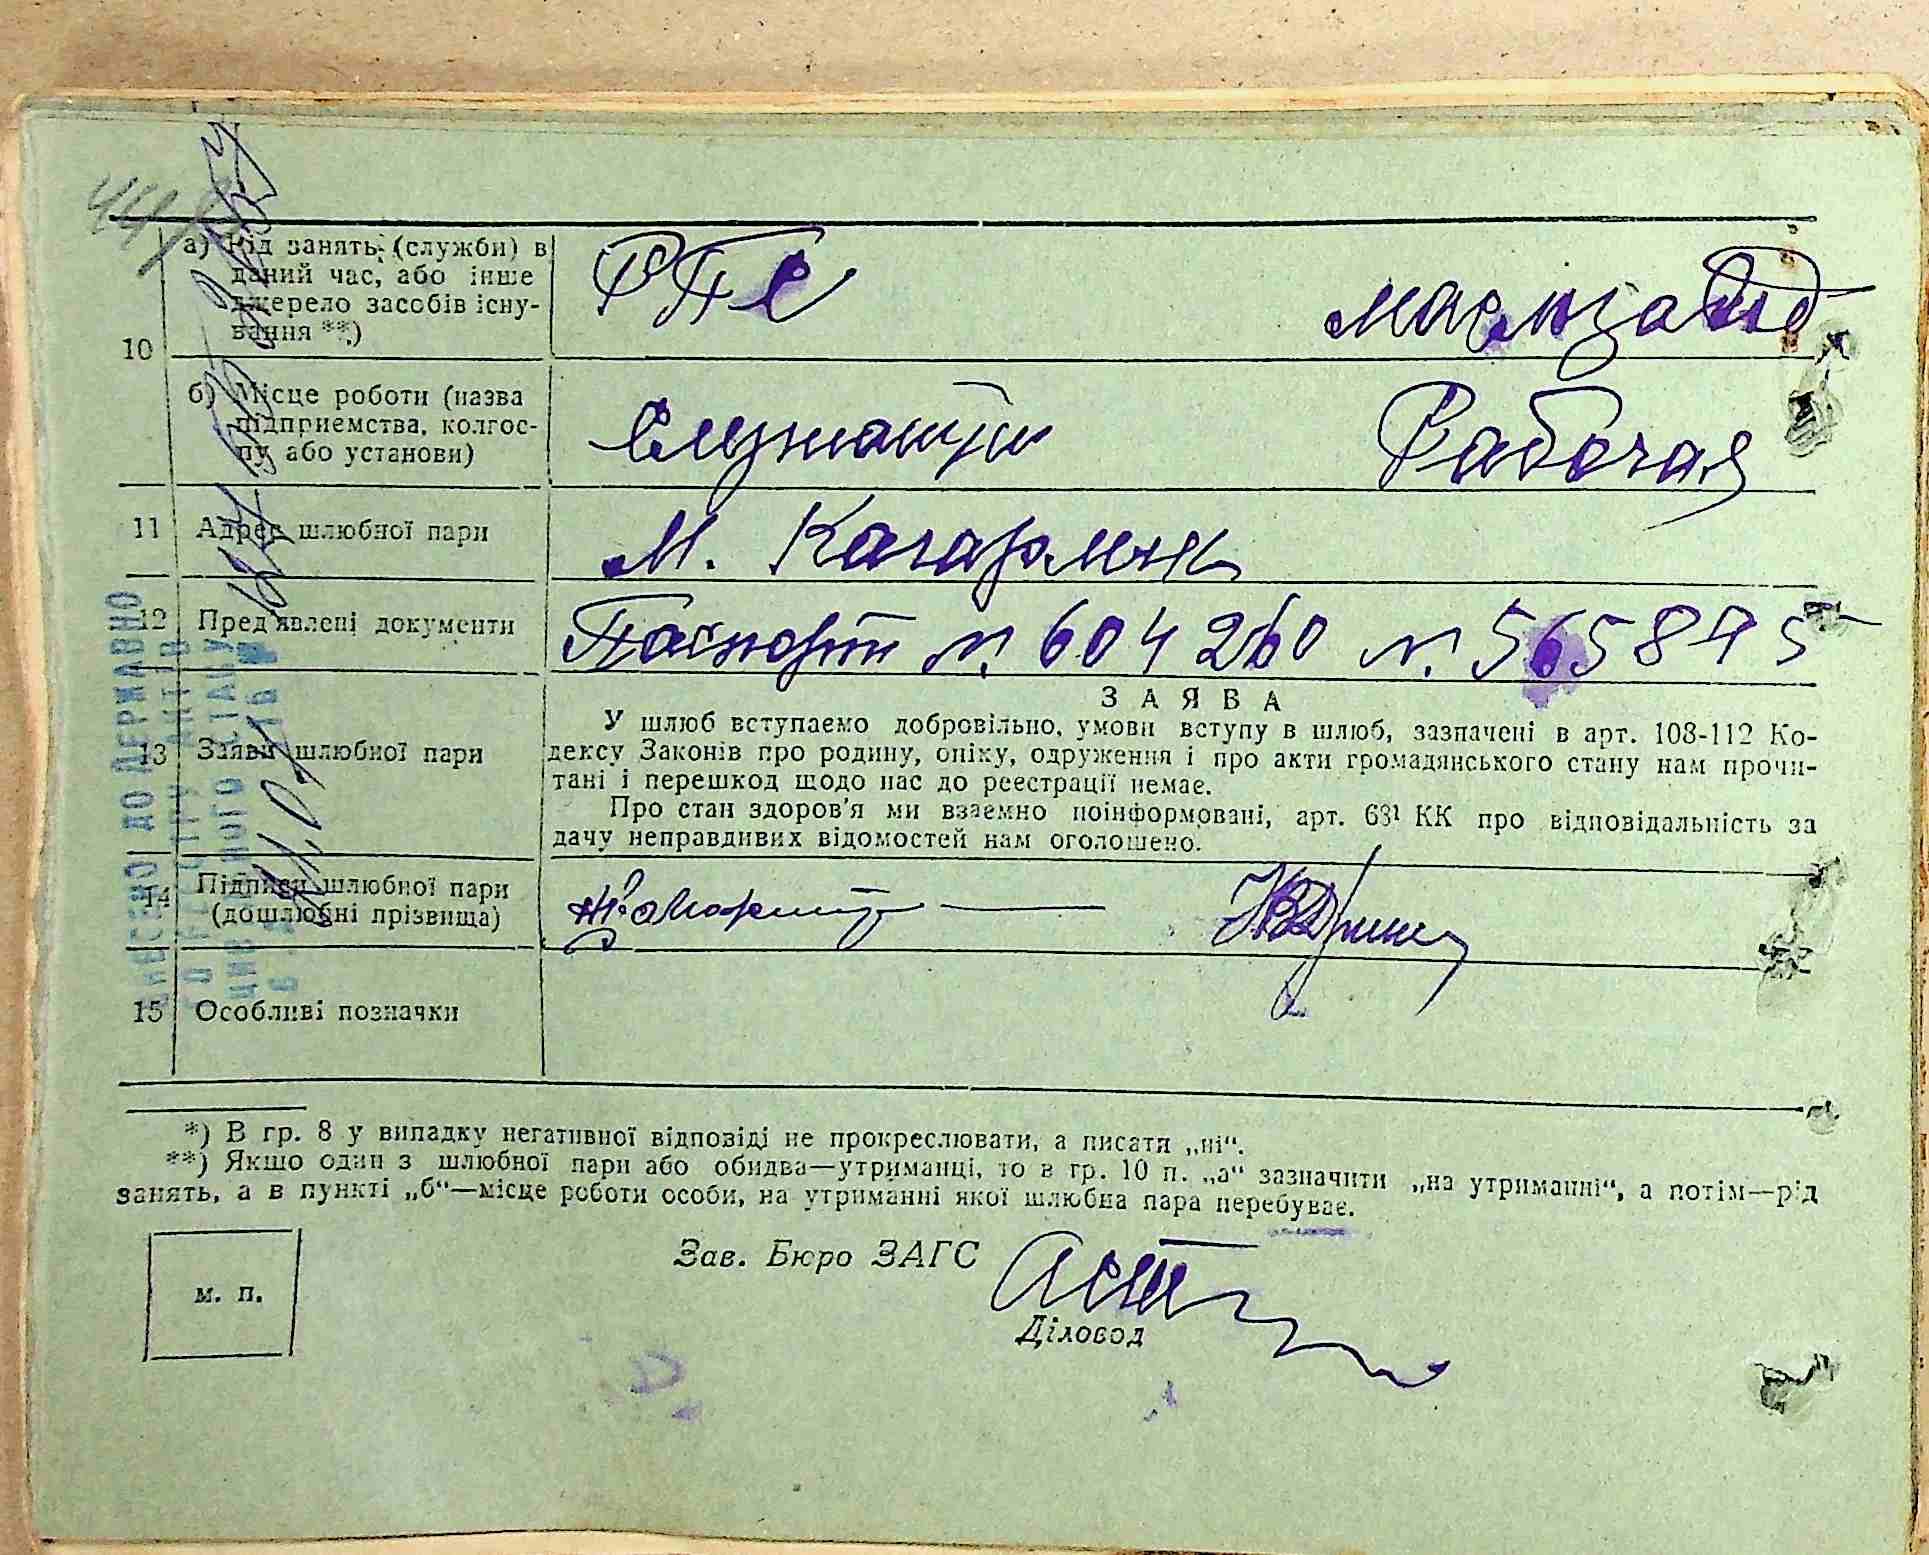 а) Рід занять (служби) в
даний час, або інше
джерело засобів існу-
вання **)
РПС
маслозавод
10
б) Місце роботи (назва
підприємства, колгос-
пу або установи)
Служащий
Рабочая
11 Адрес шлюбної пари
М. Кагарлик
12 Пред'явлені документи
Паспорт № 604260 № 565895
ЗАЯВА
У шлюб вступаємо добровільно, умови вступу в шлюб, зазначені в арт. 108-112 Ко-
13 Заяви шлюбної пари
дексу Законів про родину, опіку, одруження і про акти громадянського стану нам прочи-
тані і перешкод щодо нас до реєстрації немає.
Про стан здоров'я ми взаємно поінформовані, арт. 68¹ КК про відповідальність за
дачу неправдивих відомостей нам оголошено.
14 Підписи шлюбної пари
(дошлюбні прізвища)
15 Особливі позначки
*) В гр. 8 у випадку негативної відповіді не прокреслювати, а писати „ні“.
**) Якшо один з шлюбної пари або обидва—утриманці, то в гр. 10 п. „а“ зазначити „на утриманні“, а потім—рід
занять, а в пункті „б“—місце роботи особи, на утриманні якої шлюбна пара перебуває.
Зав. Бюро ЗАГС
м. п.
Діловод
ВНЕСЕНО ДО ДЕРЖАВНО
ГО РЕЄСТРУ АКТІВ
ЦИВІЛЬНОГО СТАНУ